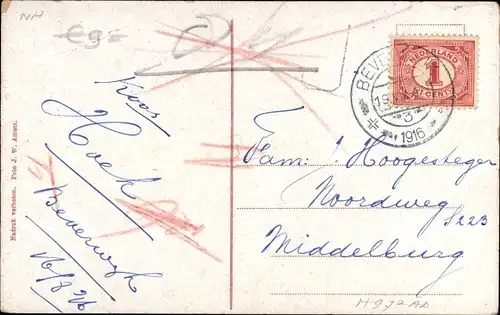 NH
€9=
Koos
Hoek
Beverwijk
Nadruk verboden. Foto J. W. Amser.
NEDERLAND
1
CENT
BEVE
19
3
1916
Fam: Hoogesteger
Noordweg
S223
Middelburg